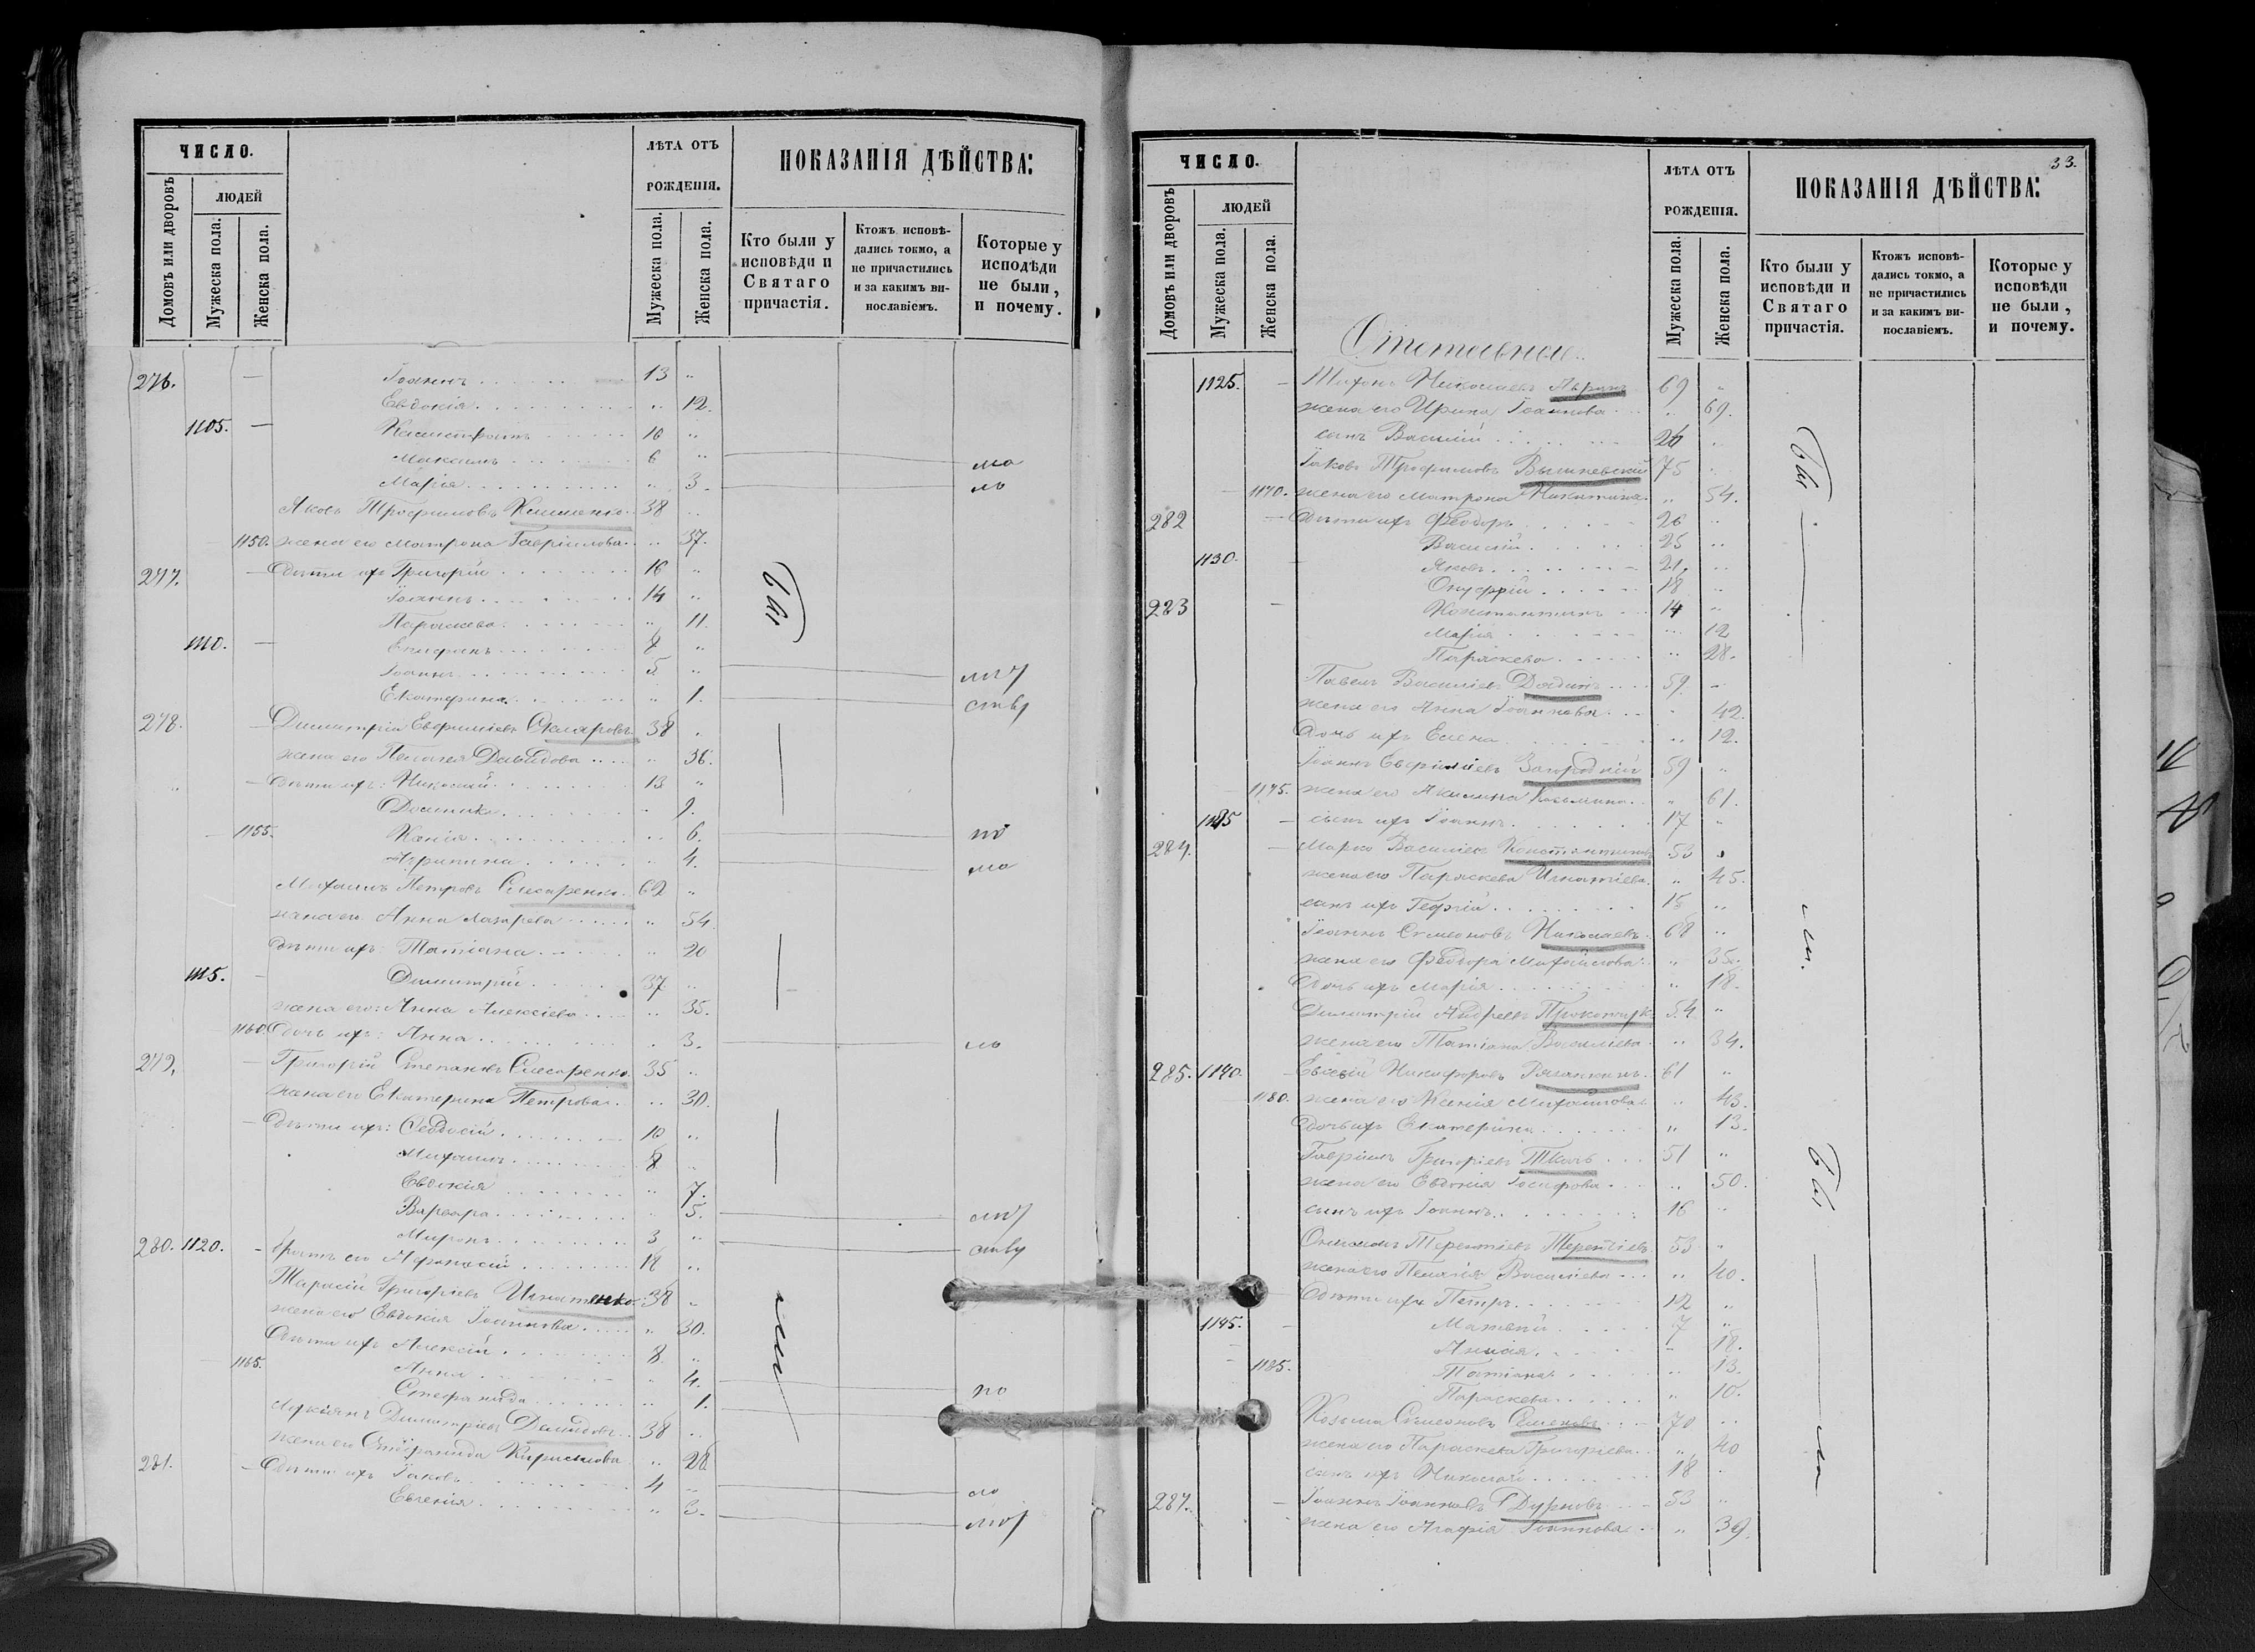 ЧИСЛО.
ЛѢТА ОТЪ РОЖДЕНІЯ.
ПОКАЗАНІЯ ДѢЙСТВА:
Домовъ или дворовъ
ЛЮДЕЙ
Мужеска пола.
Женска пола.
Мужеска пола.
Женска пола.
Кто были у исповѣди и Святаго причастія.
Ктожъ исповѣдались токмо, а не причастились и за какимъ винословіемъ.
Которые у исповѣди не были, и почему.
276. Іоаннъ 13 „
Евдокія „ 12.
1105. 10 „
Максимъ 6 „
Марія „ 3.
Яковъ Трофимовъ Клименко 38 „
1150. жена его Матрона Гавріилова „ 37.
277. Дѣти ихъ Григорій 16 „
Іоаннъ 14 „
Параскева „ 11.
1110. Епифанъ 8 „
Іоаннъ 5 „
Екатерина „ 1.
278. Димитрій Скляровъ 38 „
жена его Пелагея Давидова „ 36.
Дѣти ихъ: Николай 13 „
Домника „ 9.
1155. Ксенія „ 6.
Агрипина „ 4.
Михаилъ Петровъ Слесаренко 62 „
жена его Анна Лазарева „ 54
Дѣти ихъ: Татіана „ 20
1115. Димитрій 37 „
жена его: Анна Алексіева „ 35.
1160. Дочь ихъ: Анна „ 3.
279. Григорій Степановъ Слесаренко 35 „
жена его Екатерина Петрова „ 30.
Дѣти ихъ: Ѳеодосій 10 „
Михаилъ 8 „
Евдокія „ 7.
Варвара „ 5.
Миронъ 3 „
280. 1120. братъ его Афанасій 18 „
Тарасій Григоріевъ Игнатенко 38 „
жена его Евдокія Іоаннова „ 30.
Дѣти ихъ Алексій 8 „
1165. Анна „ 4.
Стефанида „ 1.
Димитріевъ Демидовъ 38 „
жена его Стефанида Кириллова „ 28
281. Дѣти ихъ Іаковъ 4 „
Евгенія „ 3.
33.
ЧИСЛО.
ЛѢТА ОТЪ РОЖДЕНІЯ.
ПОКАЗАНІЯ ДѢЙСТВА:
Домовъ или дворовъ
ЛЮДЕЙ
Мужеска пола.
Женска пола.
Мужеска пола.
Женска пола.
Кто были у исповѣди и Святаго причастія.
Ктожъ исповѣдались токмо, а не причастились и за какимъ винословіемъ.
Которые у исповѣди не были, и почему.
Отставные.
1125. Тихонъ Николаевъ 69 „
жена его Ирина Іоаннова „ 69.
сынъ Василій 26 „
Іаковъ Трофимовъ Вышневскій 75 „
1170. жена его Матрона Никитина „ 54.
282 Дѣти ихъ Ѳеодоръ 26 „
Василій 25 „
1130. Яковъ 21. „
Онуфрій 18 „
283 Константинъ 14 „
Марія „ 12
Параскева „ 28.
Павелъ Василіевъ 59 „
жена его Анна Іоаннова „ 42.
Дочь ихъ Елена „ 12.
Іоаннъ Загородній 59 „
1175. жена его Акилина Козьмина „ 61.
сынъ ихъ Іоаннъ 17 „
284. Марко Василіевъ Константиновъ 53 „
жена его Параскева Игнатіева „ 45.
сынъ ихъ Георгій 18 „
Іоаннъ Симеоновъ Николаевъ 68 „
жена его Ѳеодора Михайлова „ 35.
Дочь ихъ Марія „ 18.
Димитрій Андреевъ 54 „
жена его Татіана Василіева „ 34.
285. 1140. Евсевій Никифоровъ 61 „
1180. жена его Ксенія Михайлова „ 43.
Дочь ихъ Екатерина „ 13.
Гавріилъ Григоріевъ Ткачъ 51 „
жена его Евдокія Іосифова „ 50.
сынъ ихъ Іоаннъ 16 „
Терентіевъ Терентіевъ 53 „
жена его Пелагія Василіева „ 40.
Дѣти ихъ Петръ 12 „
1145. Матвѣй 7 „
Анисія „ 18.
1185. Татіана „ 13.
Параскева „ 10.
Козьма Симеоновъ Семеновъ 70 „
жена его Параскева Григоріева „ 40
сынъ ихъ Николай 18 „
287. Іоаннъ Іоанновъ Дурновъ 53 „
жена его Агафія Іоаннова „ 39.